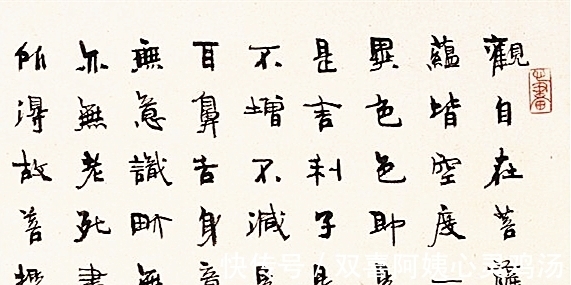 觀自在菩薩
蘊皆空度一
異色色即是
是舍利子是
不增不減是
耳鼻舌身意
無意識界無
亦無老死盡
所得故菩提
快传号 / 双喜阿姨心灵鸡汤